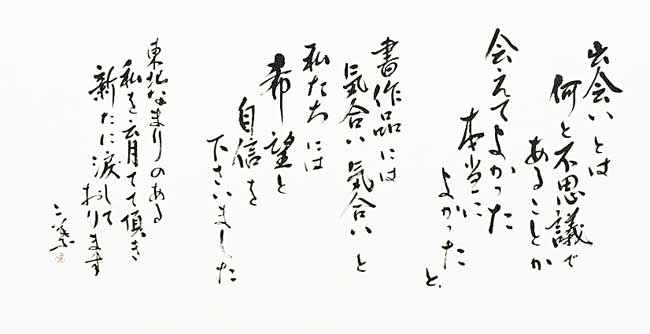 出会いとは
何と不思議で
あることか
会えてよかった
本当に
よかったと、
書作品には
氣合い氣合いと
私たちには
希望と
自信を
下さいました
東北なまりのある
私を育てて頂き
新たに涙して
おります